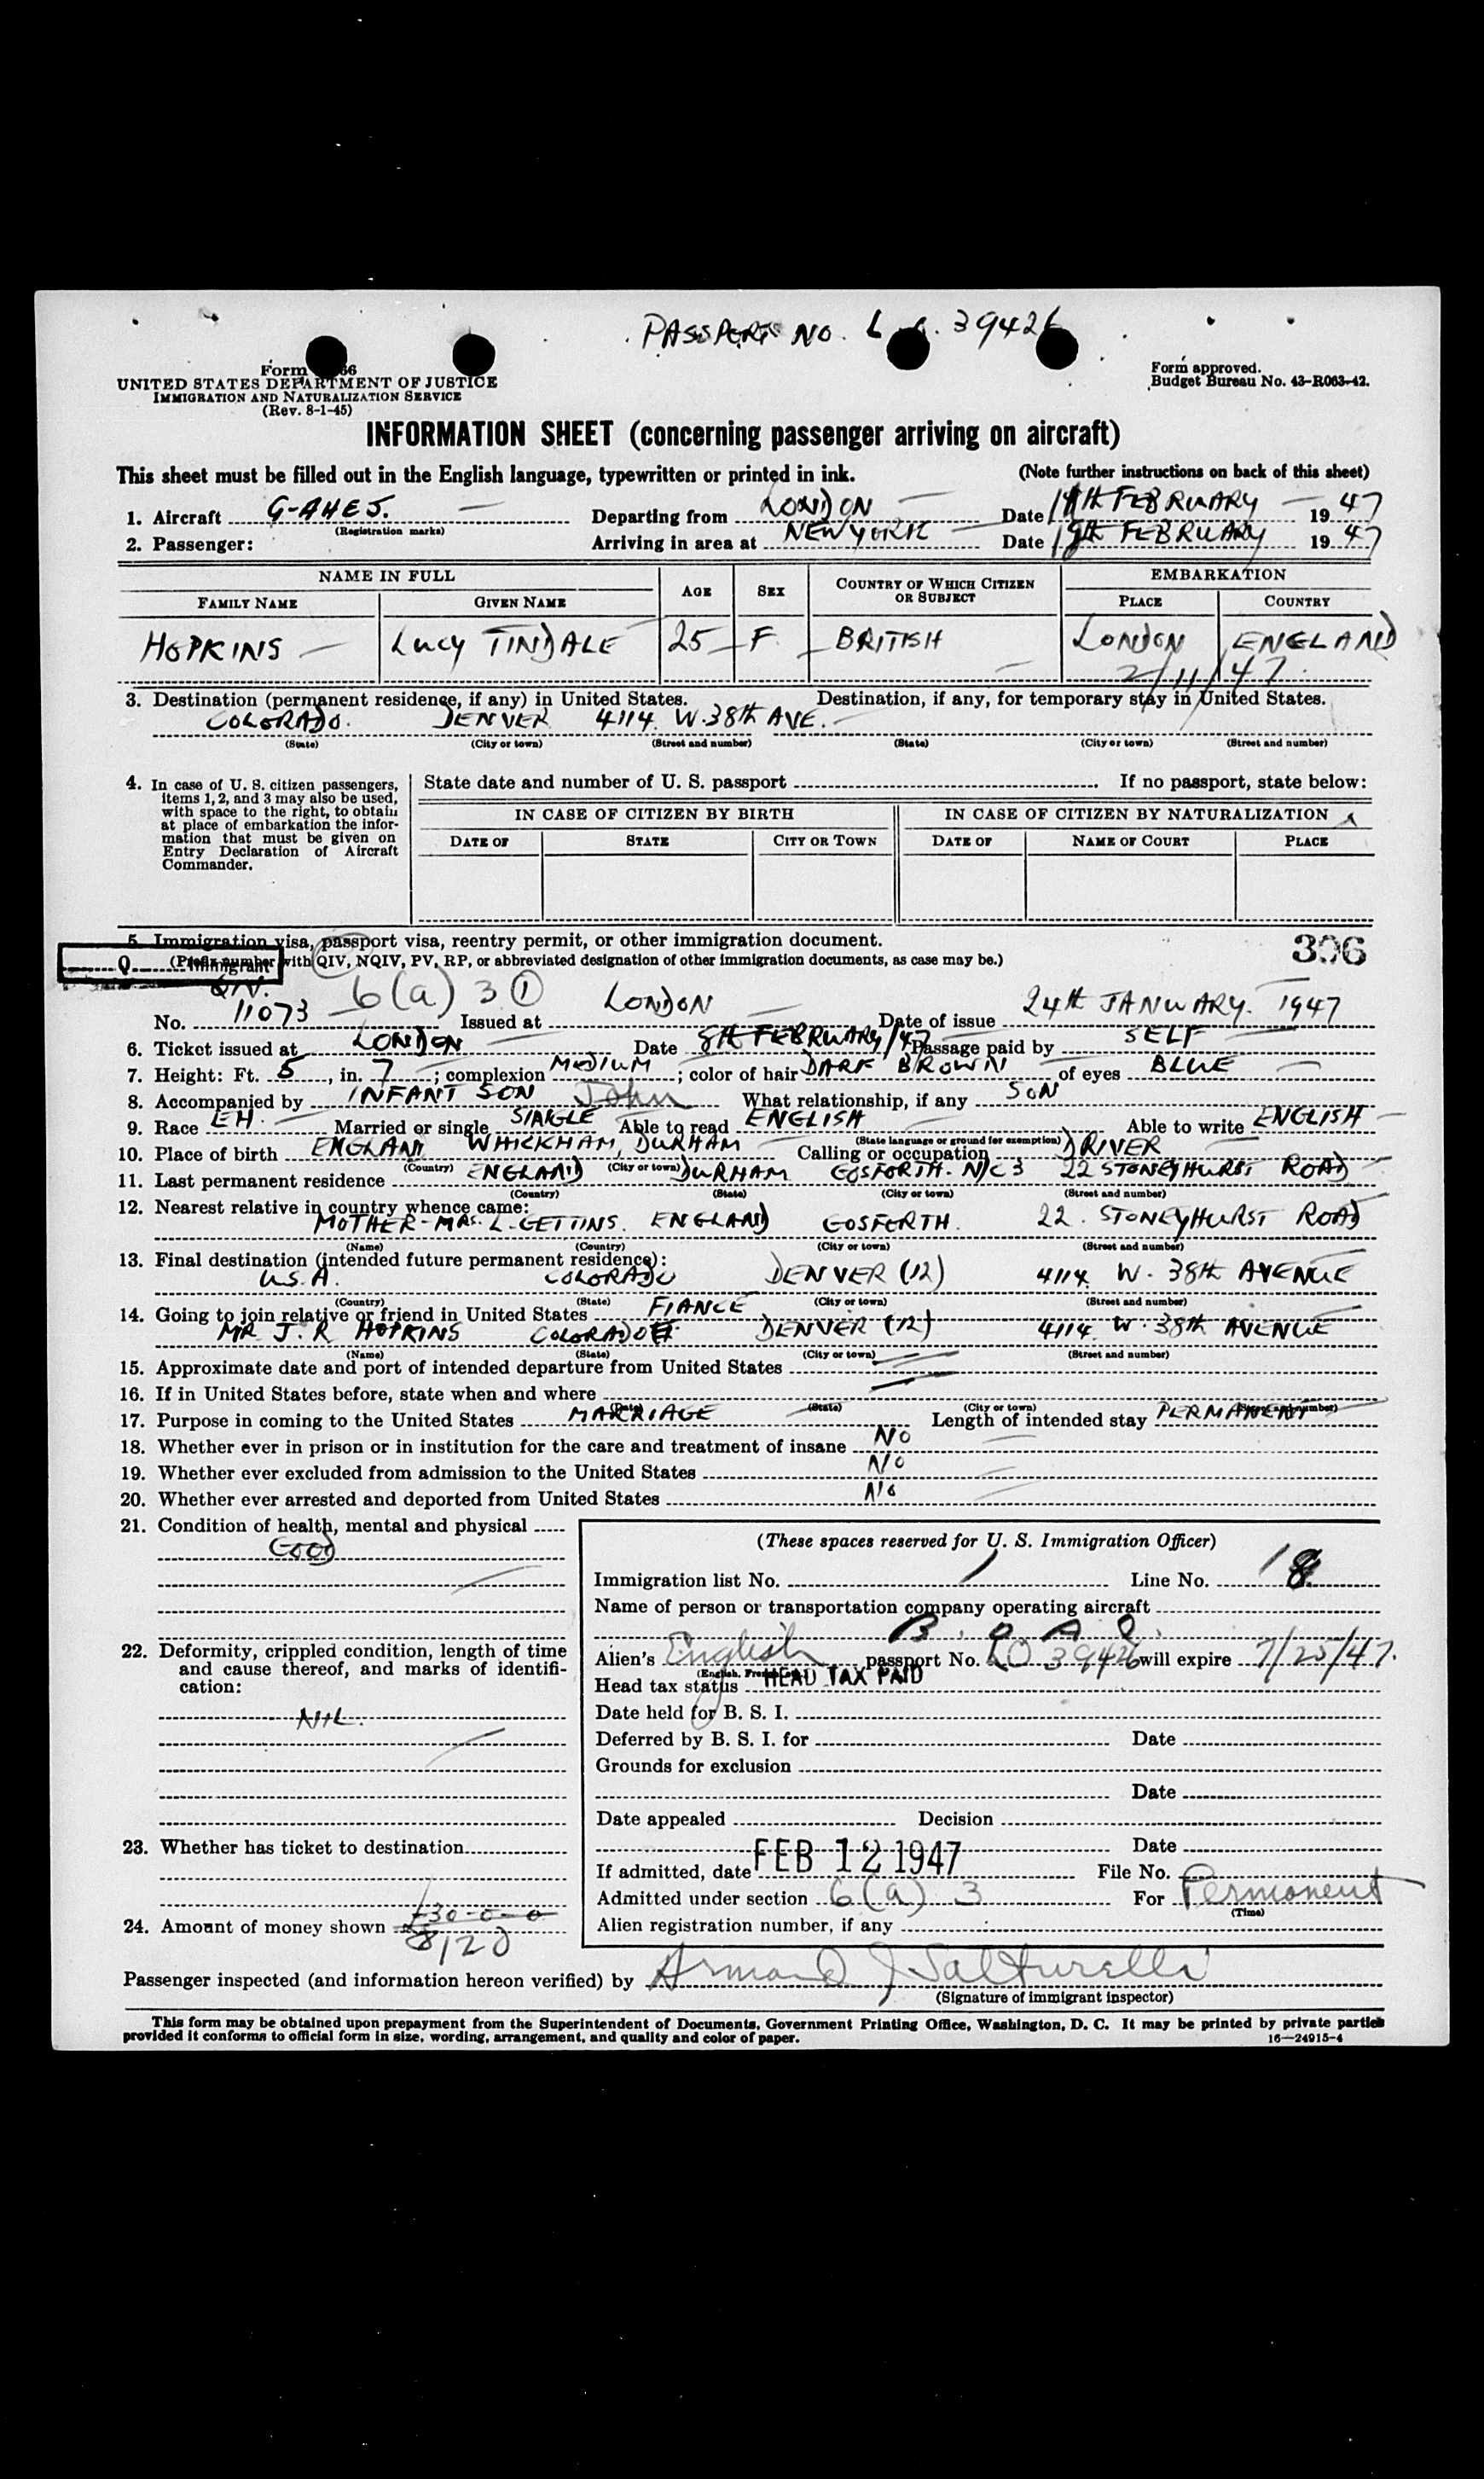 PASSPORT NO. L 39426
Form 66
UNITED STATES DEPARTMENT OF JUSTICE
IMMIGRATION AND NATURALIZATION SERVICE
(Rev. 8-1-45)
Form approved.
Budget Bureau No. 43-R063-42.
INFORMATION SHEET (concerning passenger arriving on aircraft)
This sheet must be filled out in the English language, typewritten or printed in ink. (Note further instructions on back of this sheet)
1. Aircraft G-AHEJ. Departing from LONDON Date FEBRUARY 1947
(Registration marks)
2. Passenger: Arriving in area at NEW YORK Date FEBRUARY 1947
NAME IN FULL AGE SEX COUNTRY OF WHICH CITIZEN OR SUBJECT EMBARKATION
FAMILY NAME GIVEN NAME PLACE COUNTRY
HOPKINS LUCY TINDALE 25 F BRITISH LONDON ENGLAND
2/11/47.
3. Destination (permanent residence, if any) in United States. Destination, if any, for temporary stay in United States.
COLORADO. DENVER 4114 W. 38th AVE.
(State) (City or town) (Street and number) (State) (City or town) (Street and number)
4. In case of U. S. citizen passengers, items 1, 2, and 3 may also be used, with space to the right, to obtain at place of embarkation the information that must be given on Entry Declaration of Aircraft Commander.
State date and number of U. S. passport If no passport, state below:
IN CASE OF CITIZEN BY BIRTH IN CASE OF CITIZEN BY NATURALIZATION
DATE OF STATE CITY OR TOWN DATE OF NAME OF COURT PLACE
5. Immigration visa, passport visa, reentry permit, or other immigration document. 306
(Prefix number with QIV, NQIV, PV, RP, or abbreviated designation of other immigration documents, as case may be.)
Q Immigrant
QIV. 6(a) 3 1
No. 11073 Issued at LONDON Date of issue 24th JANUARY. 1947
6. Ticket issued at LONDON Date 8th FEBRUARY/47 Passage paid by SELF
7. Height: Ft. 5, in. 7; complexion MEDIUM; color of hair DARK BROWN of eyes BLUE
8. Accompanied by INFANT SON John What relationship, if any SON
9. Race EH. Married or single SINGLE Able to read ENGLISH Able to write ENGLISH
(State language or ground for exemption)
10. Place of birth ENGLAND WHICKHAM, DURHAM Calling or occupation DRIVER
(Country) (City or town)
11. Last permanent residence ENGLAND DURHAM GOSFORTH. N/C 3 22 STONEYHURST ROAD
(Country) (State) (City or town) (Street and number)
12. Nearest relative in country whence came:
MOTHER - MRS. L. GETTINS. ENGLAND GOSFORTH. 22. STONEYHURST ROAD
(Name) (Country) (City or town) (Street and number)
13. Final destination (intended future permanent residence):
U.S.A. COLORADO DENVER (12) 4114 W. 38th AVENUE
(Country) (State) (City or town) (Street and number)
14. Going to join relative or friend in United States FIANCE
MR J. R HOPKINS COLORADO DENVER (12) 4114 W. 38th AVENUE
(Name) (State) (City or town) (Street and number)
15. Approximate date and port of intended departure from United States
16. If in United States before, state when and where
(Date) (State) (City or town) (Street and number)
17. Purpose in coming to the United States MARRIAGE Length of intended stay PERMANENT
18. Whether ever in prison or in institution for the care and treatment of insane NO
19. Whether ever excluded from admission to the United States NO
20. Whether ever arrested and deported from United States NO
21. Condition of health, mental and physical
GOOD
22. Deformity, crippled condition, length of time and cause thereof, and marks of identification:
NIL.
23. Whether has ticket to destination
24. Amount of money shown £30-0-0
$120
(These spaces reserved for U. S. Immigration Officer)
Immigration list No. 1 Line No. 18
Name of person or transportation company operating aircraft
B. O A C.
Alien's English passport No. LO 39426 will expire 7/25/47.
Head tax status HEAD TAX PAID
Date held for B. S. I.
Deferred by B. S. I. for Date
Grounds for exclusion
Date
Date appealed Decision
Date
If admitted, date FEB 12 1947 File No.
Admitted under section 6(a) 3 For Permanent
(Time)
Alien registration number, if any
Passenger inspected (and information hereon verified) by Armand J Salturelli
(Signature of immigrant inspector)
This form may be obtained upon prepayment from the Superintendent of Documents, Government Printing Office, Washington, D. C. It may be printed by private parties
provided it conforms to official form in size, wording, arrangement, and quality and color of paper. 16—24915-4